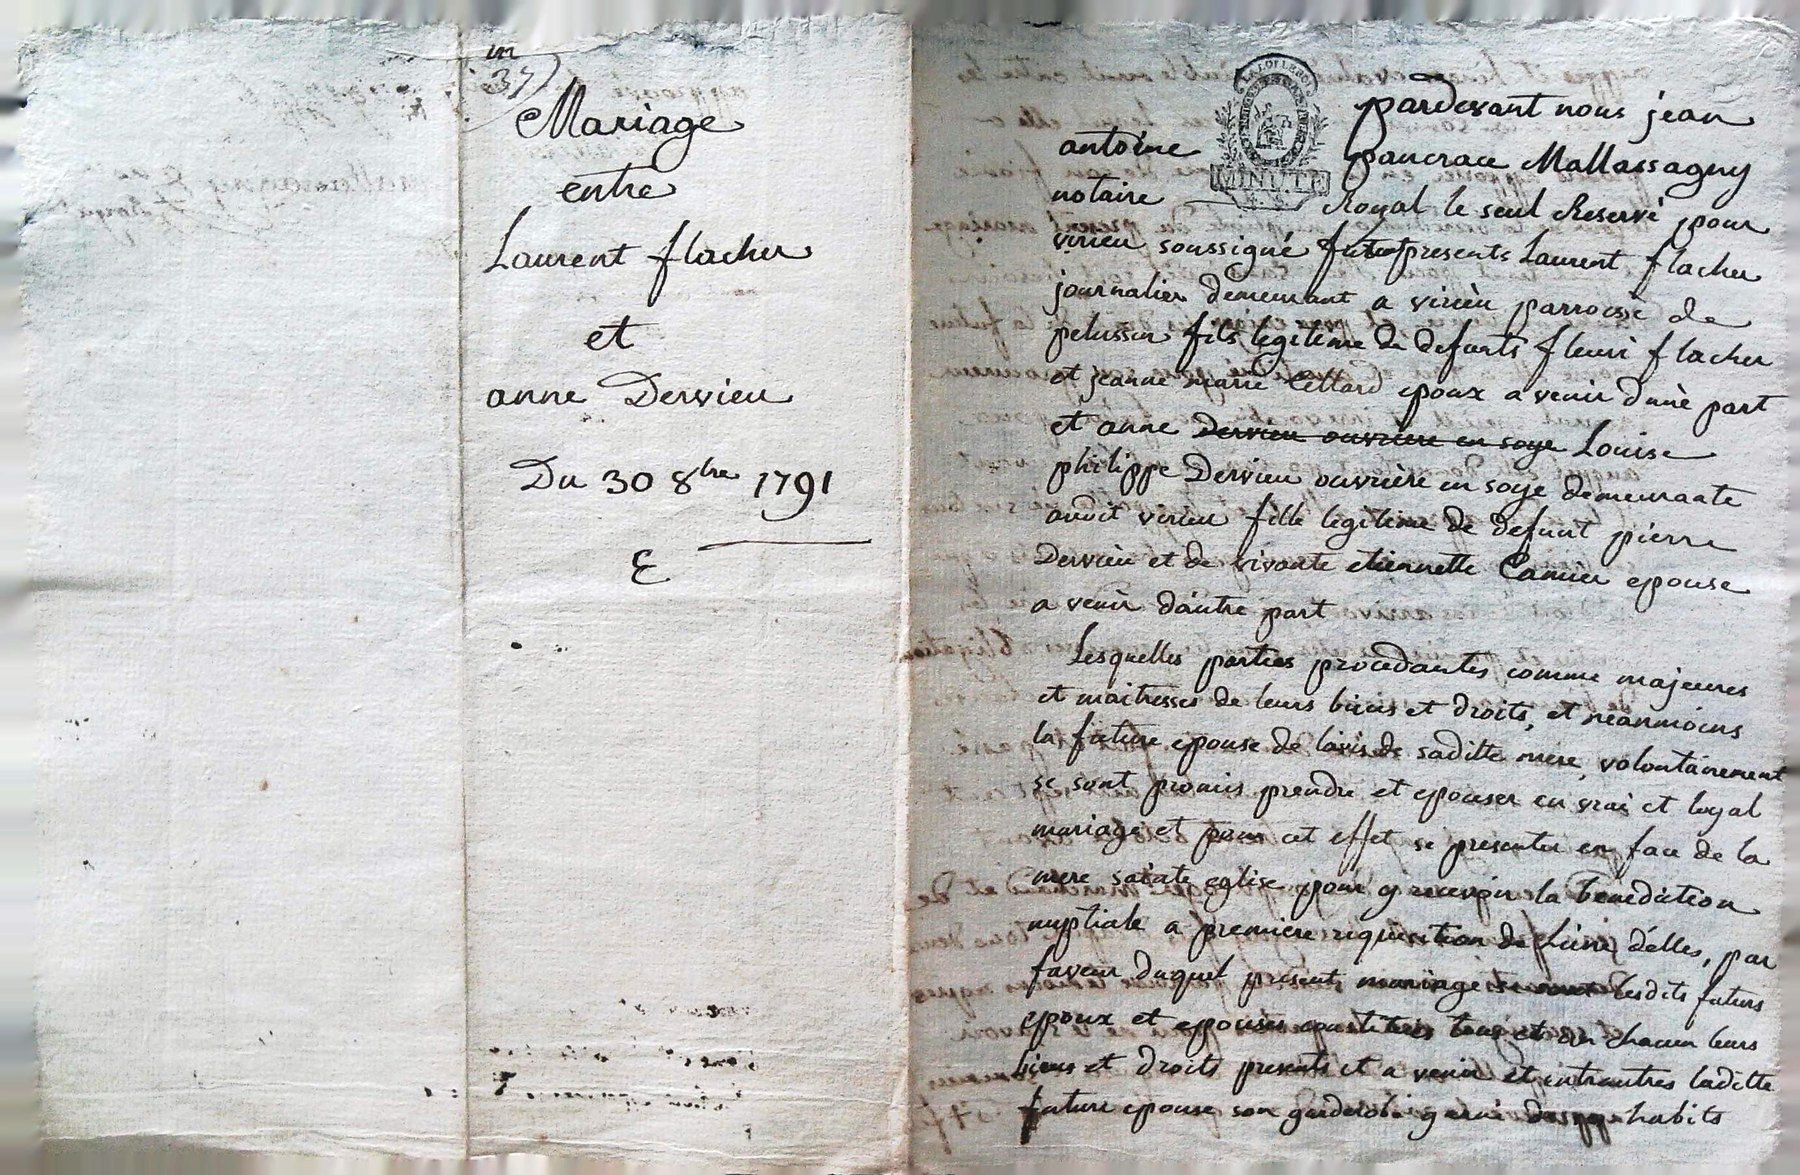 in
37
Mariage
entre
Laurent flacher
et
anne Dervieu
Du 30 8bre 1791
E
LA LOI LE ROI
MINUTE
pardevant nous jean
antoine pancrace Mallassagny
notaire Royal le seul Reservé pour
virieu soussigné presents Laurent flacher
journalier demeurant a virieu parroisse de
pelussin fils legitime de defunts fleuri flacher
et jeanne marie Cellard epoux a venir dune part
et anne Dervieu ouvriere en soye Louise
philippe Dervieu ouvriere en soye demeurante
audit virieu fille legitime de defunt pierre
Dervieu et de vivante etiennette Camier epouse
a venir dautre part
Lesquelles parties procedantes comme majeures
et maitresses de leurs biens et droits, et neanmoins
la future epouse de lavis de saditte mere, volontairement
se sont promis prendre et epouser en vrai et loyal
mariage et pour cet effet se presenter en face de la
mere sainte eglise pour y recevoir la benediction
nuptiale a premiere requisition de Lune delles, par
faveur duquel present mariage lesdits futurs
epoux et epouses constitués tous et un chacun leurs
biens et droits presents et a venir et entrautres laditte
future epouse son garderobe garni habits